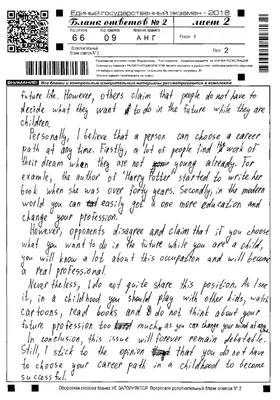 Единый государственный экзамен - 2018
Бланк ответов № 2
лист 2
Код региона
Код предмета
Название предмета
66
09
АНГ
Резерв - 8
Дополнительный бланк ответов № 2
Лист 2
ВНИМАНИЕ! Все бланки и контрольные измерительные материалы рассматриваются в комплекте
future life. However, others claim that people do not have to
decide what they want to do in the future while they are
children.
Personally, I believe that a person can choose a career
path at any time. Firstly, a lot of people find work of
their dream when they are not young already. For
example, the author of "Harry Potter" started to write her
book when she was over forty years. Secondly, in the modern
world you can easily get one more education and
change your profession.
However, opponents disagree and claim that if you choose
what you want to do in the future while you are a child,
you will know a lot about this occupation and will become
a real professional.
Nevertheless, I do not quite share this position. As I see
it, in a childhood you should play with other kids, watch
cartoons, read books and do not think about your
future profession too much, as you can change your mind at any time.
In conclusion, this issue will forever remain debatable.
Still, I stick to the opinion that you do not have
to choose your career path in a childhood to become
successful.
Оборотная сторона бланка НЕ ЗАПОЛНЯЕТСЯ. Попросите дополнительный бланк ответов № 2